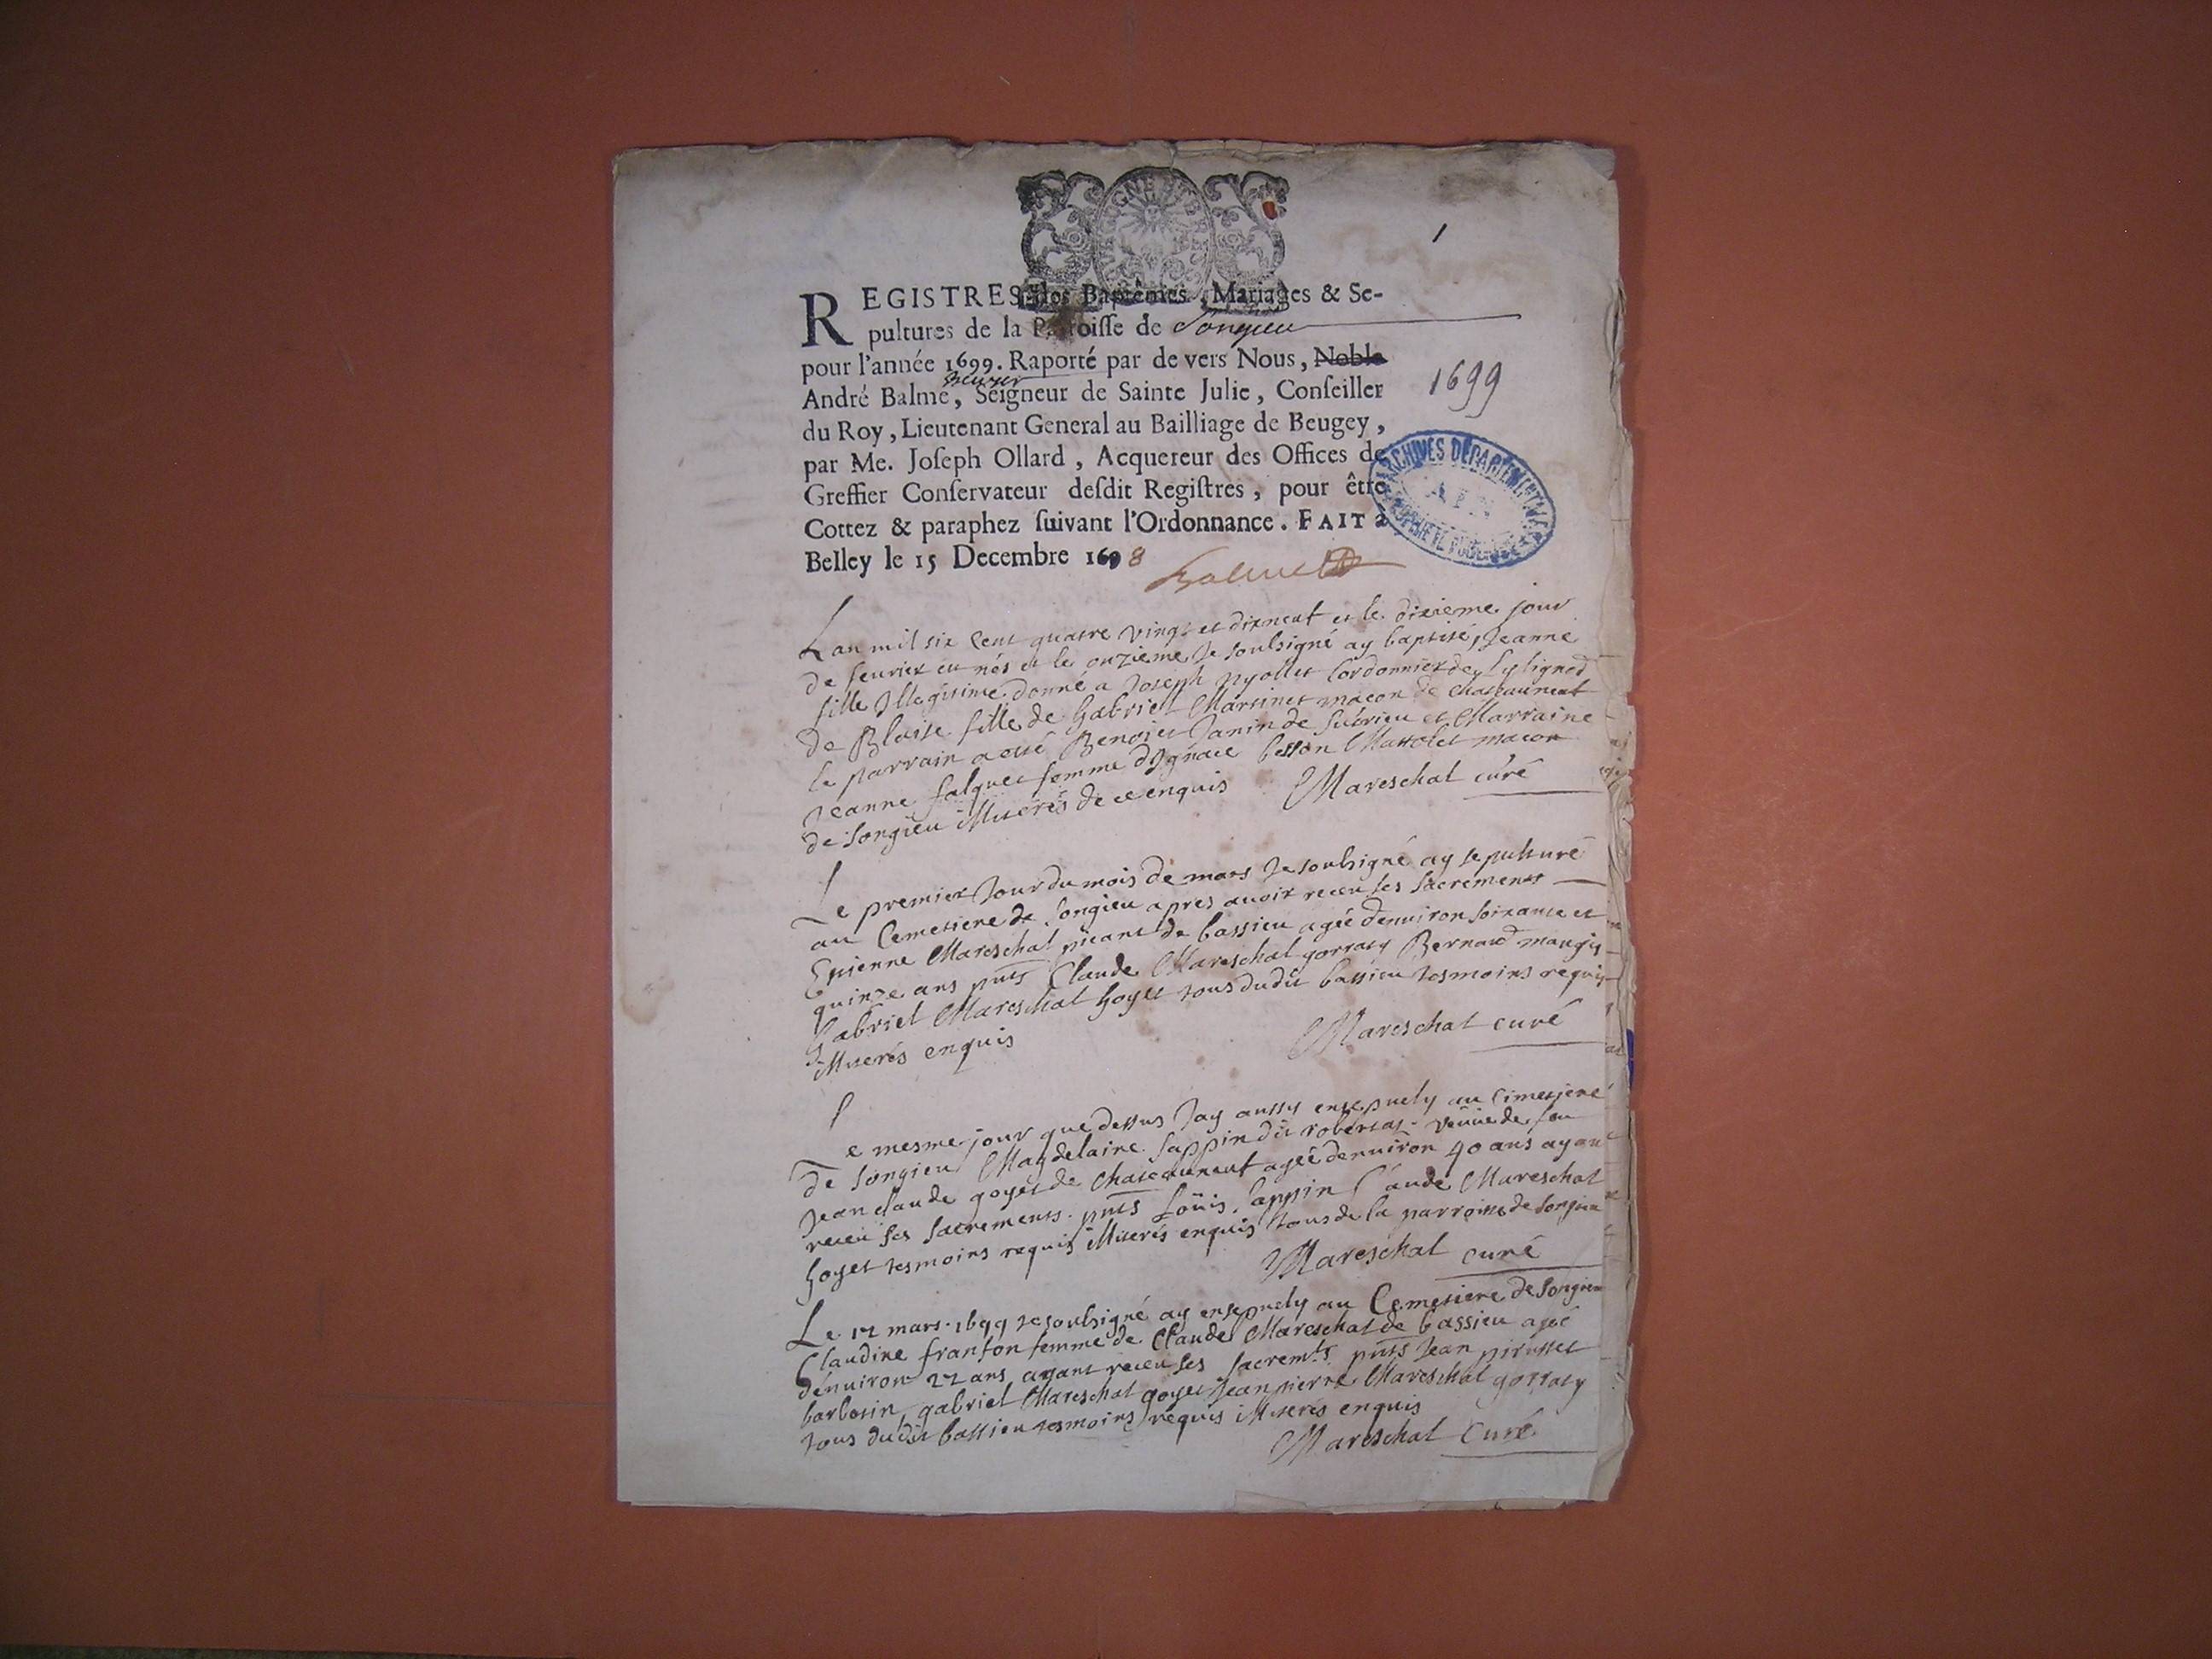 1
REGISTRES des Baptêmes, Mariages & Se-
pultures de la Paroisse de Songieu
pour l'année 1699. Raporté par de vers Nous, Noble
André Balme, Seigneur de Sainte Julie, Conseiller
1699
du Roy, Lieutenant General au Bailliage de Beugey,
par Me. Joseph Ollard, Acquereur des Offices de
Greffier Conservateur desdit Registres, pour être
Cottez & paraphez suivant l'Ordonnance. FAIT a
Belley le 15 Decembre 1698
Balme
ARCHIVES DÉPARTEMENTALES
AIN
PROPRIÉTÉ PUBLIQUE
Lan mil six Cent quatre vingt et dixneuf et le dixieme jour
de feurier eu nés et le onzieme Je soubsigné ay baptisé, Jeanne
fille Illegitime donné a Joseph pyollet Cordonnier de Lylignod
de Blaise fille de Gabriel Martinet macon de chateauneuf
le parrain a esté Benoist Janin de Subrieu et Marraine
Jeanne falquet femme dIgnace besson Mattolet macon
de Songieu Illiterés de ce enquis Mareschal curé
Le premier Jour du mois de mars Je soubsigné ay sepulturé
au Cemetiere de Songieu apres avoir receu ses sacrements
Etienne Mareschal picant de bassieu agée denuiron soixante et
quinze ans pnts Claude Mareschal gorraty Bernard mangis
Gabriel Mareschal goyet tous dudit bassieu tesmoins requis
Illiterés enquis Mareschal curé
Le mesme jour que dessus Jay aussy ensepuely au Cimetiere
de Songieu Magdelaine Sappin dit robertas veuue de feu
Jean claude goyet de chateauneuf agée denuiron 40 ans ayan
receu ses sacrements. pnts Loüis Sappin Claude Mareschal
goyet tesmoins requis Illiterés enquis tous de la parroisse de Songieu
Mareschal curé
Le 12 mars 1699 Je soubsigné ay ensepuely au Cemetiere de Songieu
Claudine franson femme de Claude Mareschal de bassieu agée
denuiron 22 ans ayant receu ses sacremts pnts Jean pirosset
barbosin, gabriel Mareschal goyet Jean pierre Mareschal gorraty
tous dudit bassieu tesmoins requis Illiterés enquis
Mareschal Curé